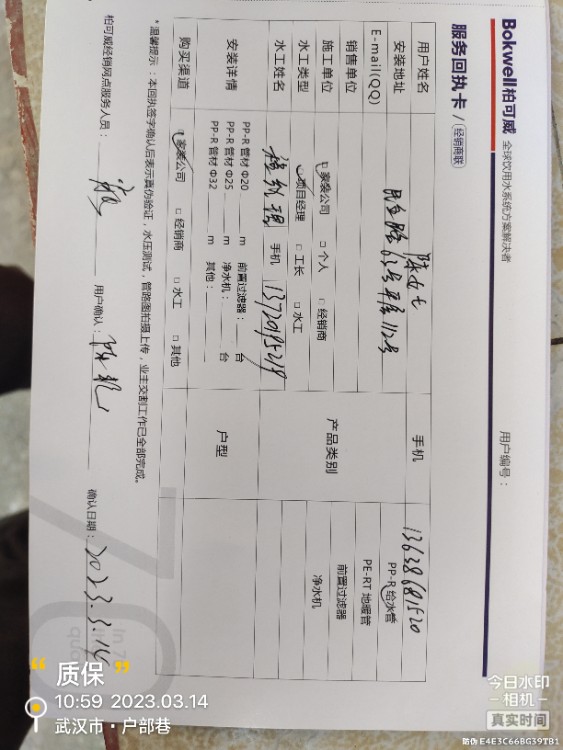 Bokwell柏可威 全球饮用水系统方案解决者
用户编号：
服务回执卡 / 经销商联
用户姓名 陈女士 手机 13638681520
安装地址
E-mail(QQ)
销售单位
施工单位 □ 家装公司 □ 个人 □ 经销商
水工类型 □ 项目经理 □ 工长 □ 水工
水工姓名 程经理 手机 13720195219
产品类别
PP-R 给水管
PE-RT 地暖管
前置过滤器
净水机
安装详情
PP-R 管材 Φ20 m 前置过滤器： 台
PP-R 管材 Φ25 m 净水机： 台
PP-R 管材 Φ32 m 其他：
户型
购买渠道 □ 家装公司 □ 经销商 □ 水工 □ 其他
* 温馨提示：本回执签字确认后表示真伪验证，水压测试，管路图拍摄上传，业主交割工作已全部完成。
柏可威经销网点服务人员： 用户确认： 确认日期：2023.3.14
“ 质保 ”
10:59 2023.03.14
武汉市·户部巷
今日水印
-相机-
真实时间
防伪 E4E3C66BG39TB1